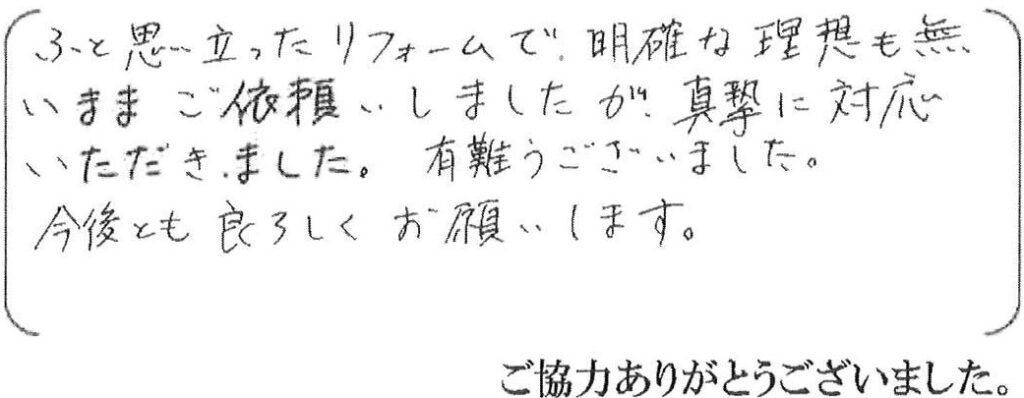 ふと思い立ったリフォームで、明確な理想も無
いままご依頼いしましたが、真摯に対応
いただきました。 有難うございました。
今後とも良ろしくお願いします。
ご協力ありがとうございました。